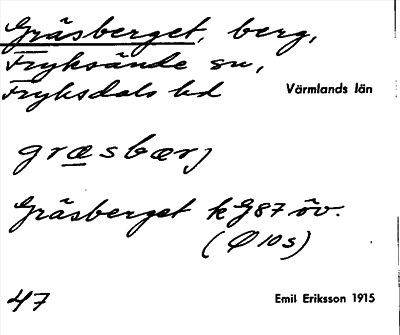 Gräsberget, berg,
Fryksände sn,
Fryksdals hd
Värmlands län
græsbærj
Gräsberget k G87 öv.
(Q 10 s)
47
Emil Eriksson 1915